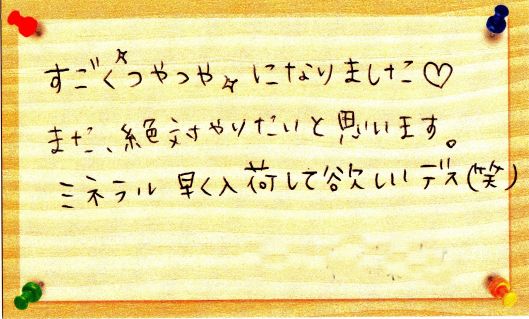 すごく☆つやつや☆になりました♡
また、絶対やりたいと思います。
ミネラル早く入荷して欲しいデス(笑)